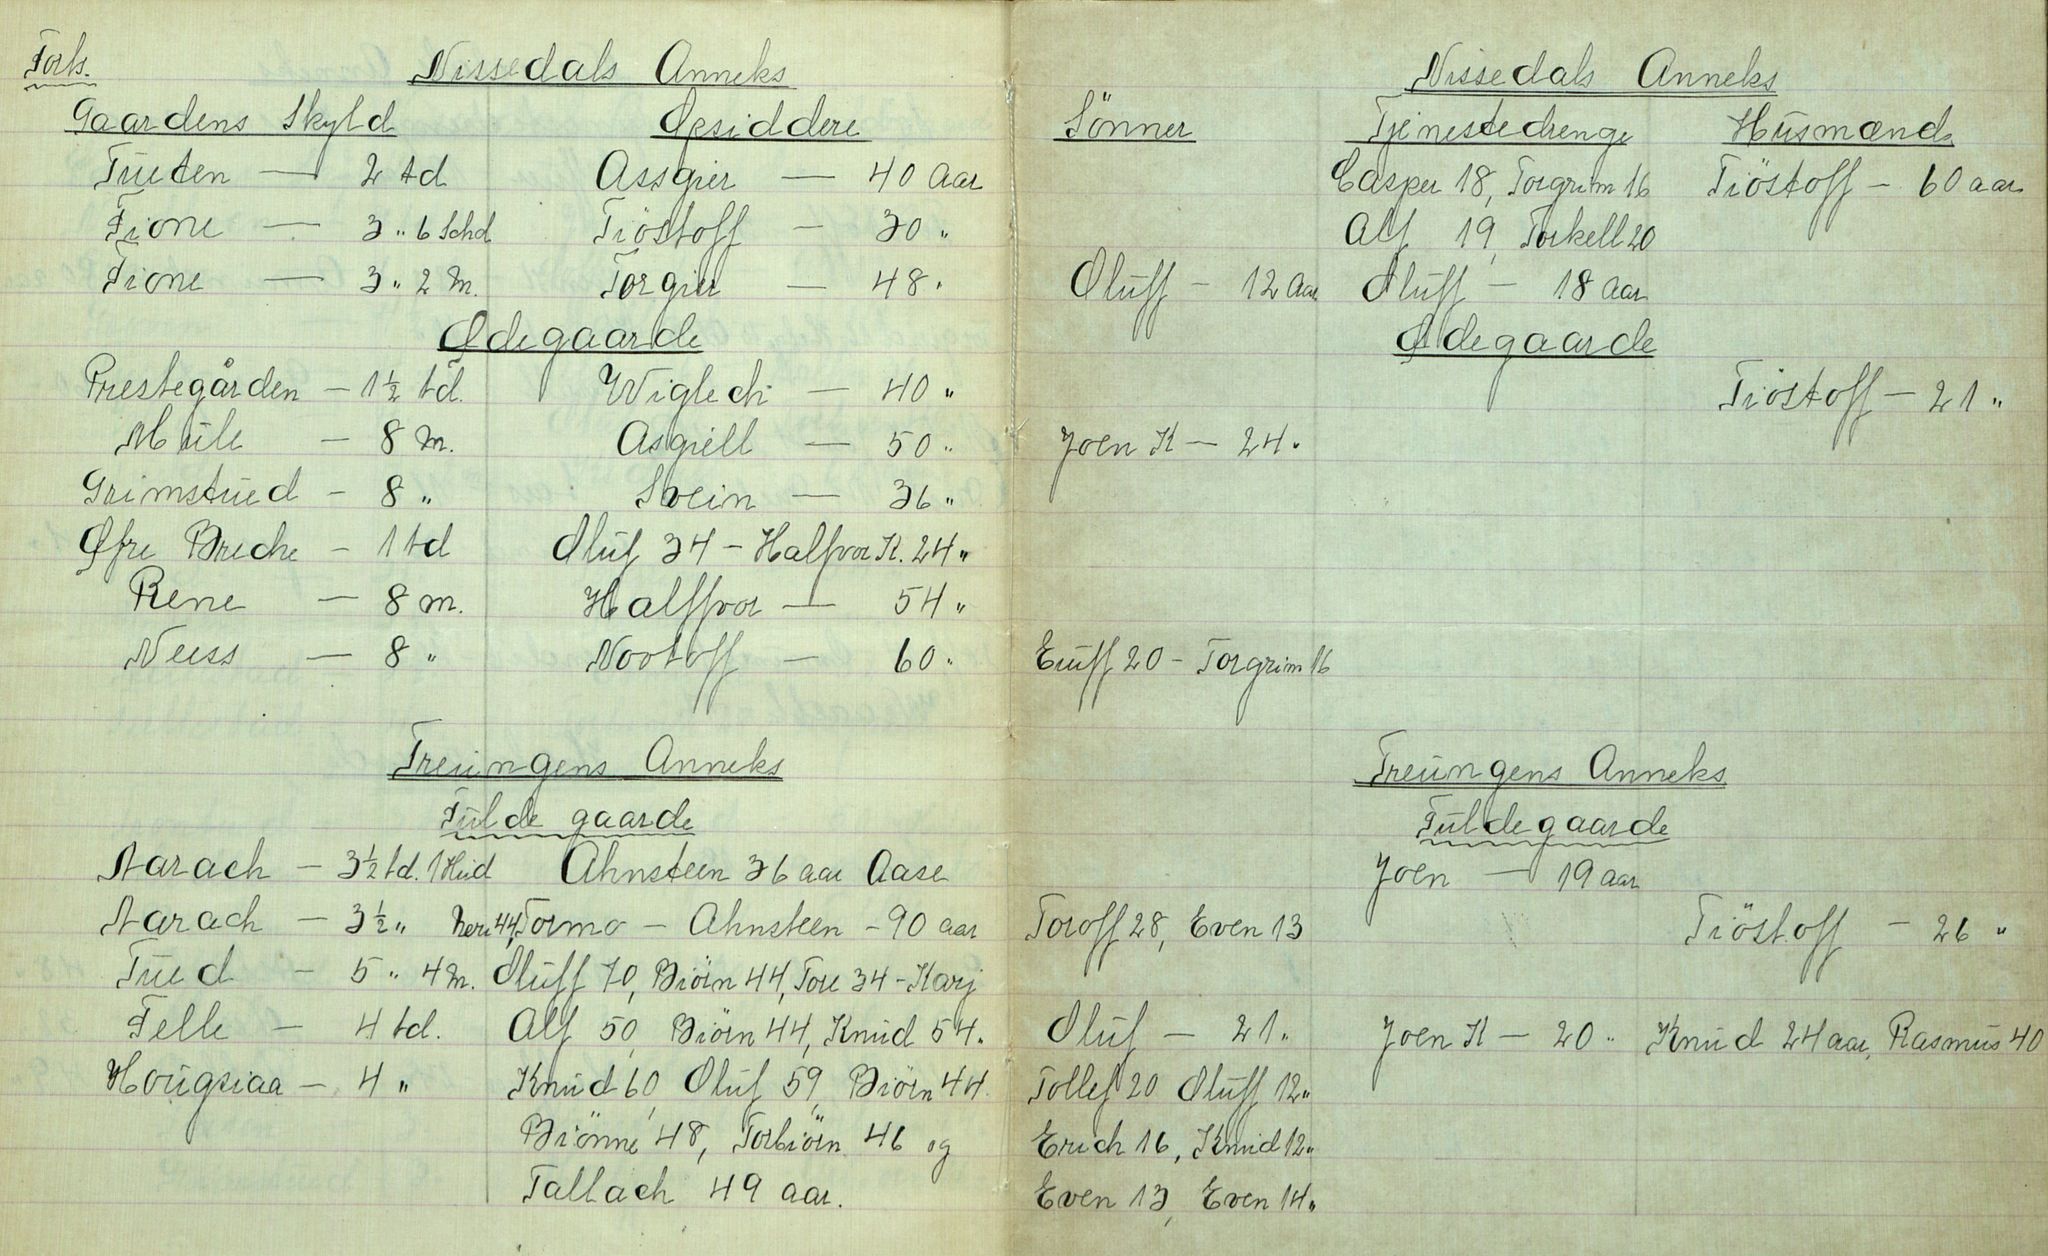 Forts. Nissedals Anneks
Gaardens Skyld Opsiddere
Tueten — 2 td Assgier — 40 Aar
Fione — 3 „ 6 Schd Tiöstoff — 30 „
Fione — 3 „ 2 m. Torgier — 48 „
Ødegaarde
Prestegården — 1½ td. Wiglech — 40 „
Mule — 8 m. Asgiell — 50 „
Grimstued — 8 „ Svein — 36 „
Øfre Breche — 1 td Oluf 34 — Halfvor K. 24 „
Rene — 8 m. Halffvor — 54 „
Neess — 8 „ Nootoff — 60 „
Treungens Anneks
Fulde gaarde
Aarach — 3½ td. 1 Hud Ahnsteen 36 aar Aase
Aarach — 3½ „ Neri 44, Tormo — Ahnsteen — 90 aar
Tued — 5 „ 4 m. Oluff 70, Biörn 44, Tore 34 — Karj
Felle — 4 td. Alf 50, Biörn 44, Knud 54 „
Hougsiaa — 4 „ Knud 60, Oluf 59, Biörn 44
Biönne 48, Torbiörn 46 og
Tallach 49 aar.
Nissedals Anneks
Sönner Tjenestedrenge Husmænd
Casper 18, Torgrim 16 Tiöstoff — 60 aar
Alf 19, Torkell 20
Oluff — 12 Aar Oluff — 18 aar
Ødegaarde
Tiöstoff — 21 „
Joen K — 24 „
Euff 20 — Torgrim 16
Treungens Anneks
Fuldegaarde
Joen — 19 aar
Toroff 28, Even 13 Tiöstoff — 26 „
Oluf — 21 „ Joen K — 20 „ Knud 24 aar, Rasmus 40
Tollef 20 Oluff 12 „
Erich 16, Knud 12 „
Even 13, Even 14 „